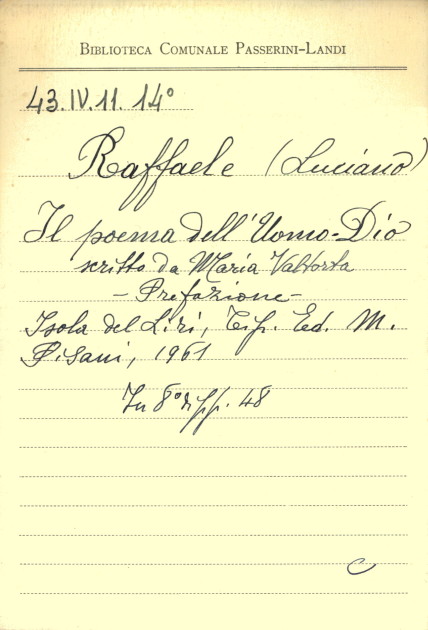 BIBLIOTECA COMUNALE PASSERINI-LANDI
43.IV.11. 14°
Raffaele (Luciano)
Il poema dell'Uomo-Dio
scritto da Maria Valtorta
- Prefazione -
Isola del Liri, Tip. Ed. M.
Pisani, 1961
In 8° di pp. 48
C